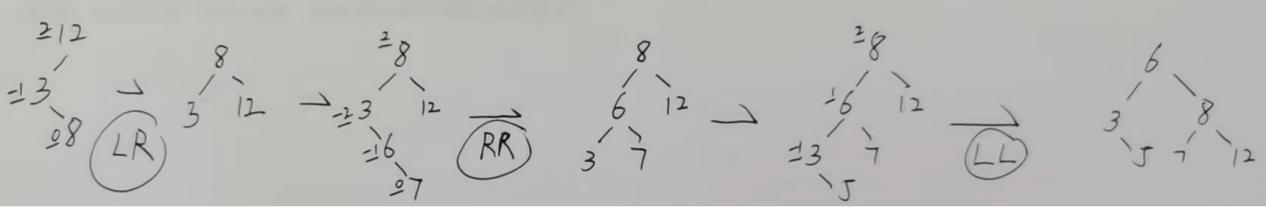 2 12
-1 3
0 8
LR
8
3 12
2 8
-2 3 12
-1 6
0 7
RR
8
6 12
3 7
2 8
1 6 12
-1 3 7
5
LL
6
3 8
5 7 12